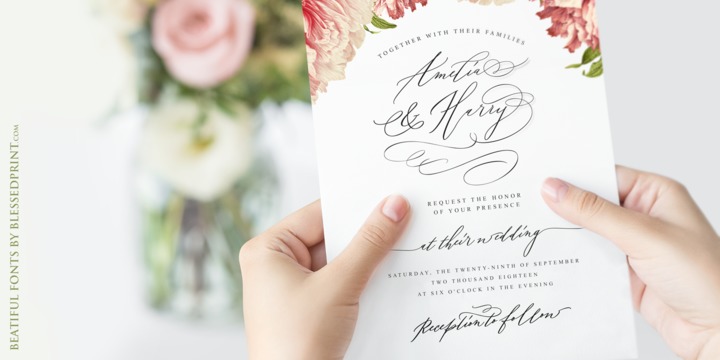 TOGETHER WITH THEIR FAMILIES
Amelia
& Harry
REQUEST THE HONOR
OF YOUR PRESENCE
at their wedding
SATURDAY, THE TWENTY-NINTH OF SEPTEMBER
TWO THOUSAND EIGHTEEN
AT SIX O'CLOCK IN THE EVENING
Reception to follow
BEATIFUL FONTS BY BLESSEDPRINT.COM